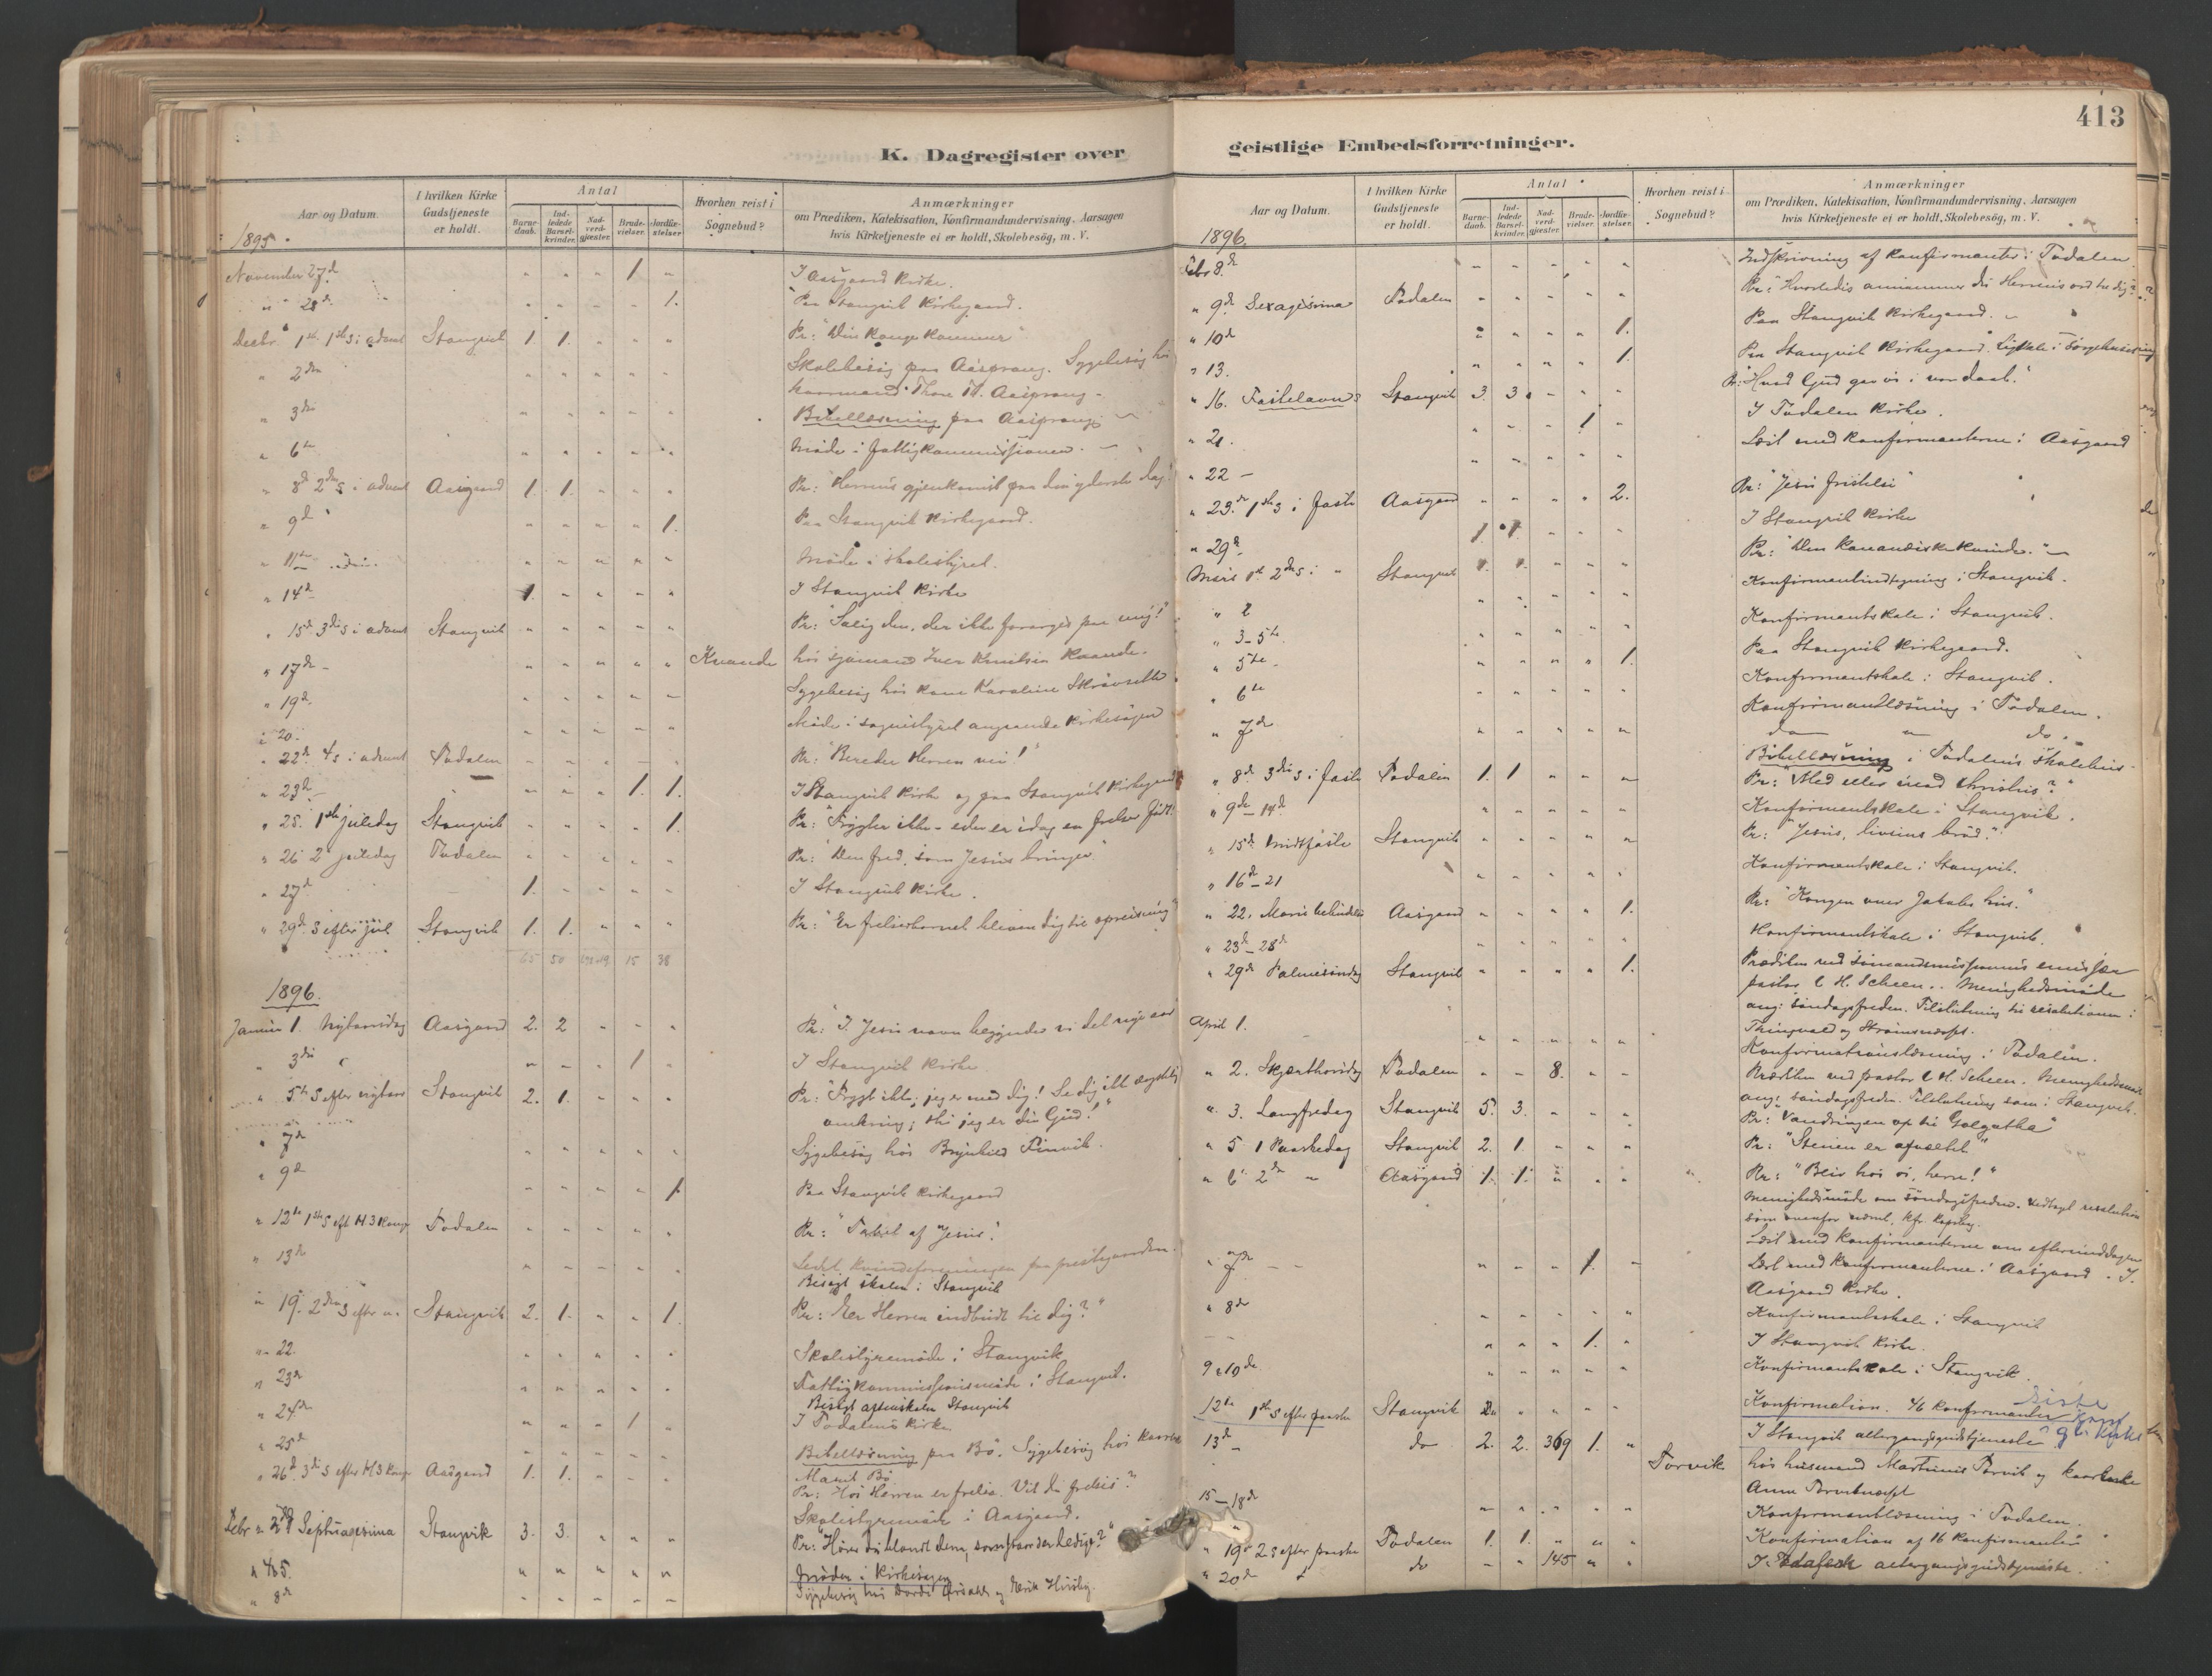 413
K. Dagregister over
geistlige Embedsforretninger.
Aar og Datum.
I hvilken Kirke Gudstjeneste er holdt.
Antal
Barnedaab.
Indledede Barselkvinder.
Nadverdgjæster.
Brudevielser.
Jordfæstelser
Hvorhen reist i Sognebud?
Anmærkninger
om Prædiken, Katekisation, Konfirmandundervisning, Aarsagen
hvis Kirketjeneste ei er holdt, Skolebesøg, m. V.
1895.
November 27d. " " " 1 " I Aasgaard Kirke.
" 28d " " " " 1. Paa Stangvik Kirkegaard.
Decbr. 1ste 1ste S i advent Stangvik 1. 1. " " " Pr: "Din konge kommer"
" 2den " " " " " Skolebesøg paa Aasprang. Sygebesøg hos
kaarmand Thore Aasprang.
" 3die " " " " " Bibellæsning paa Aasprang.
" 6te " " " " " Møde i fattigkommissionen.
" 8d 2den S i advent Aasgaard 1. 1. " " " Pr: Herrens gjenkomst paa den yderste dag.
" 9d " " " " 1. Paa Stangvik Kirkegaard.
" 11te " " " " " Møde i skolestyret.
" 14d 1. " " " " I Stangvik Kirke
" 15d 3die S i advent Stangvik " " " " " Pr: "Salig den, der ikke forarges paa mig!"
" 17de " " " " " Kvande hos sjømand Iver Knutsen Kvande.
" 19d. " " " " " Sygebesøg hos kone Karoline
" 20. " " " " " Møde i sognestyret angaaende kirkesagen
" 22d 4 S i advent Todalen " " " " " Pr: "Bereder Herren vei!"
" 23d " " " 1. 1. I Stangvik Kirke og paa Stangvik Kirkegaard
" 25. 1ste juledag Stangvik " " " " 1. Pr: "Frygter ikke - eder er idag en frelser født.
" 26 2 juledag Todalen " " " " " Pr: "Den fred, som Jesus bringer."
" 27d 1. " " " " I Stangvik Kirke.
" 29d. S efter jul Stangvik 1. 1. " " " Pr: "Er frelserbarnet bleven dig til opreisning"
65 50 15 38
1896.
Januar 1. Nytaarsdag Aasgaard 2. 2 " " " Pr: "I Jesu navn begynder vi det nye aar
" 3die " " " 1 " I Stangvik Kirke
" 5te S efter nytaar Stangvik 2. 1. " " " Pr: "Frygt ikke, jeg er med dig! Se dig ikke ængstelig
omkring; thi jeg er din Gud!"
" 7de " " " " " Sygebesøg hos Brynhild Finvik.
" 9de " " " " 1. Paa Stangvik Kirkegaard
" 12te 1ste S eft H. 3 Kong. Todalen " " " " " Pr: "Tabet af Jesus."
" 13de " " " " " Ledet kvindeforeningen paa prestegaarden.
Besøgt skolen i Stangvik
" 19. 2den S efter " Stangvik 2. 1. " " 1. Pr: "Er Herren indbudt til dig?"
" 22. " " " " " Skolestyremøde i Stangvik
" 23d " " " " " Fattigkommissionsmøde i Stangvik.
Besøgt aftenskolen Stangvik
" 24de " " " 1 " I Todalens Kirke
" 25d " " " " " Bibellæsning paa Bø. Sygebesøg hos
Marit Bø
" 26d. 3die S efter H 3 Kong Aasgaard 1. 1. " " " Pr: Hos Herren er frelse. Vil du frelses?
Skolestyremøde i Aasgaard.
Febr " 2d Septuagesima Stangvik 3. 3. " " " Pr: "Hører du blandt dem, som staar der ledige?"
" 4 & 5. " " " " " Møder i kirkesagen
" 8de " " " " " Sygebesøg hos
1896.
Febr 8d. " " " " " Indskrivning af konfirmanter i Todalen
" 9d Sexagesima Todalen " " " " " Pr: "Hvorledes annammer du Herrens ord til dig?"
" 10d " " " " 1. Paa Stangvik Kirkegaard.
" 13. " " " " 1. Paa Stangvik Kirkegaard. Ligtale i Sørgehuset
" 16. Fastelavns Stangvik 3. 3. " " " Pr: "Hvad Gud gav os i vor daab."
" 21. " " " 1 " I Todalen Kirke.
" 22 " " " " " Læst med konfirmanterne i Aasgaard
" 23de 1ste S i faste Aasgaard " " " " 2. Pr: "Jesu fristelse"
" 29d. 1. 1. " " " I Stangvik Kirke
Mars 1ste 2den S i " Stangvik 1. 1. " " " Pr: "Den kananæiske kvinde."
" 2 " " " " " Konfirmantindtegning i Stangvik.
" 3-5te. " " " " " Konfirmantskole i Stangvik.
" 5te " " " " 1. Paa Stangvik Kirkegaard.
" 6te " " " " " Konfirmantskole i Stangvik.
" 7de " " " " " Konfirmantlæsning i Todalen.
do " do.
Bibellæsning i Todalens skolehus
" 8de 3die S i faste Todalen 1. 1 " " " Pr: "Med eller imod Christus?"
" 9de-14d " " " " " Konfirmantskole i Stangvik.
" 15d. Midtfaste Stangvik " " " " " Pr: "Jesus, livsens brød."
" 16d-21 " " " " " Konfirmantskole i Stangvik.
" 22. Marie bebudelse Aasgaard " " " " 1. Pr: "Kongen over Jakobs hus."
" 23d-28d " " " " " Konfirmantskole i Stangvik.
" 29de Palmesøndag Stangvik " " " " 1. Prædiken ved Sømandsmissionens emissær
pastor C. H. Scheen. Menighedsmøde
ang: søndagsfreden. Tilslutning til resolutionen i
Thingvold og Strømsnæsset.
April 1. " " " " " Konfirmationslæsning i Todalen.
" 2. Skjærthorsdag Todalen " " 8. " " Prædiken ved pastor C. H. Scheen. Menighedsmøde
ang: søndagsfreden. Tilslutning som i Stangvik.
" 3. Langfredag Stangvik 5. 3. " " " Pr: "Vandringen op til Golgatha"
" 5 1 Paaskedag Stangvik 2. 1. " " " Pr: "Stenen er afvæltet."
" 6 2de " Aasgaard 1. 1. " " " Pr: "Bliv hos os, herre!"
Menighedsmøde om søndagsfreden. Vedtaget resolution
som ovenfor nævnt, kfr. kopibog.
Læst med konfirmanterne om eftermiddagen
" 7de " " " 1. " Læst med konfirmanterne i Aasgaard. I
Aasgaard Kirke.
" 8de " " " " " Konfirmantskole i Stangvik
" " " 1. " I Stangvik Kirke.
9 & 10de " " " " " Konfirmantskole i Stangvik.
12te 1ste S efter paaske Stangvik 2. " " " " Konfirmation. 46 konfirmanter siste
konf
gl. kirke
13de do 2. 2. 369 1. " I Stangvik altergangsgudstjeneste
Torvik hos husmand Martinus Torvik og
Anna
15-18de " " " " " Konfirmantlæsning i Todalen.
" 19de 2 S efter paaske Todalen 1. 1. " " " Konfirmation af 16 konfirmanter
" 20de do " " 145 " " I Todalen altergangsgudstjeneste.